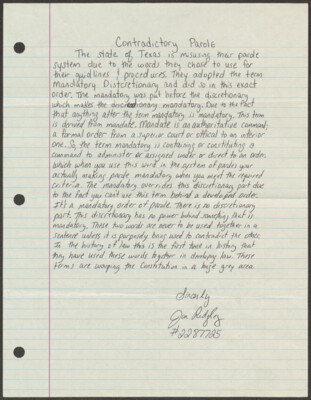 Contradictory Parole
The state of Texas is misusing their parole
system due to the words they chose to use for
their guidlines & procedures. They adopted the term
Mandatory Distcretionary and did so in this exact
order. The mandatory was put before the discretionary
which makes the discretionary mandatory. Due to the fact
that anything after the term mandatory is mandatory. This term
is derived from mandate. Mandate is an authoritative command;
a formal order from a superior court or official to an inferior
one. So, the term mandatory is containing or constituting a
command to administer or assigned under or direct to an order.
Which when you use this word in the system of parole your
actually making parole mandatory when you meet the required
criteria. The mandatory overrides this discretionary part due
to the fact you cant use this term behind a developed order.
It's a mandatory order of parole. There is no discretionary
part. This discretionary has no power behind something that is
mandatory. These two words are never to be used together in a
sentence unless it is purposely being used to contradict the other.
In the history of law this is the first time in history that
they have used these words together in law. These
terms are warping the Constitution in a huge grey area.
Sincerly
Jon Ridgley
#2287725